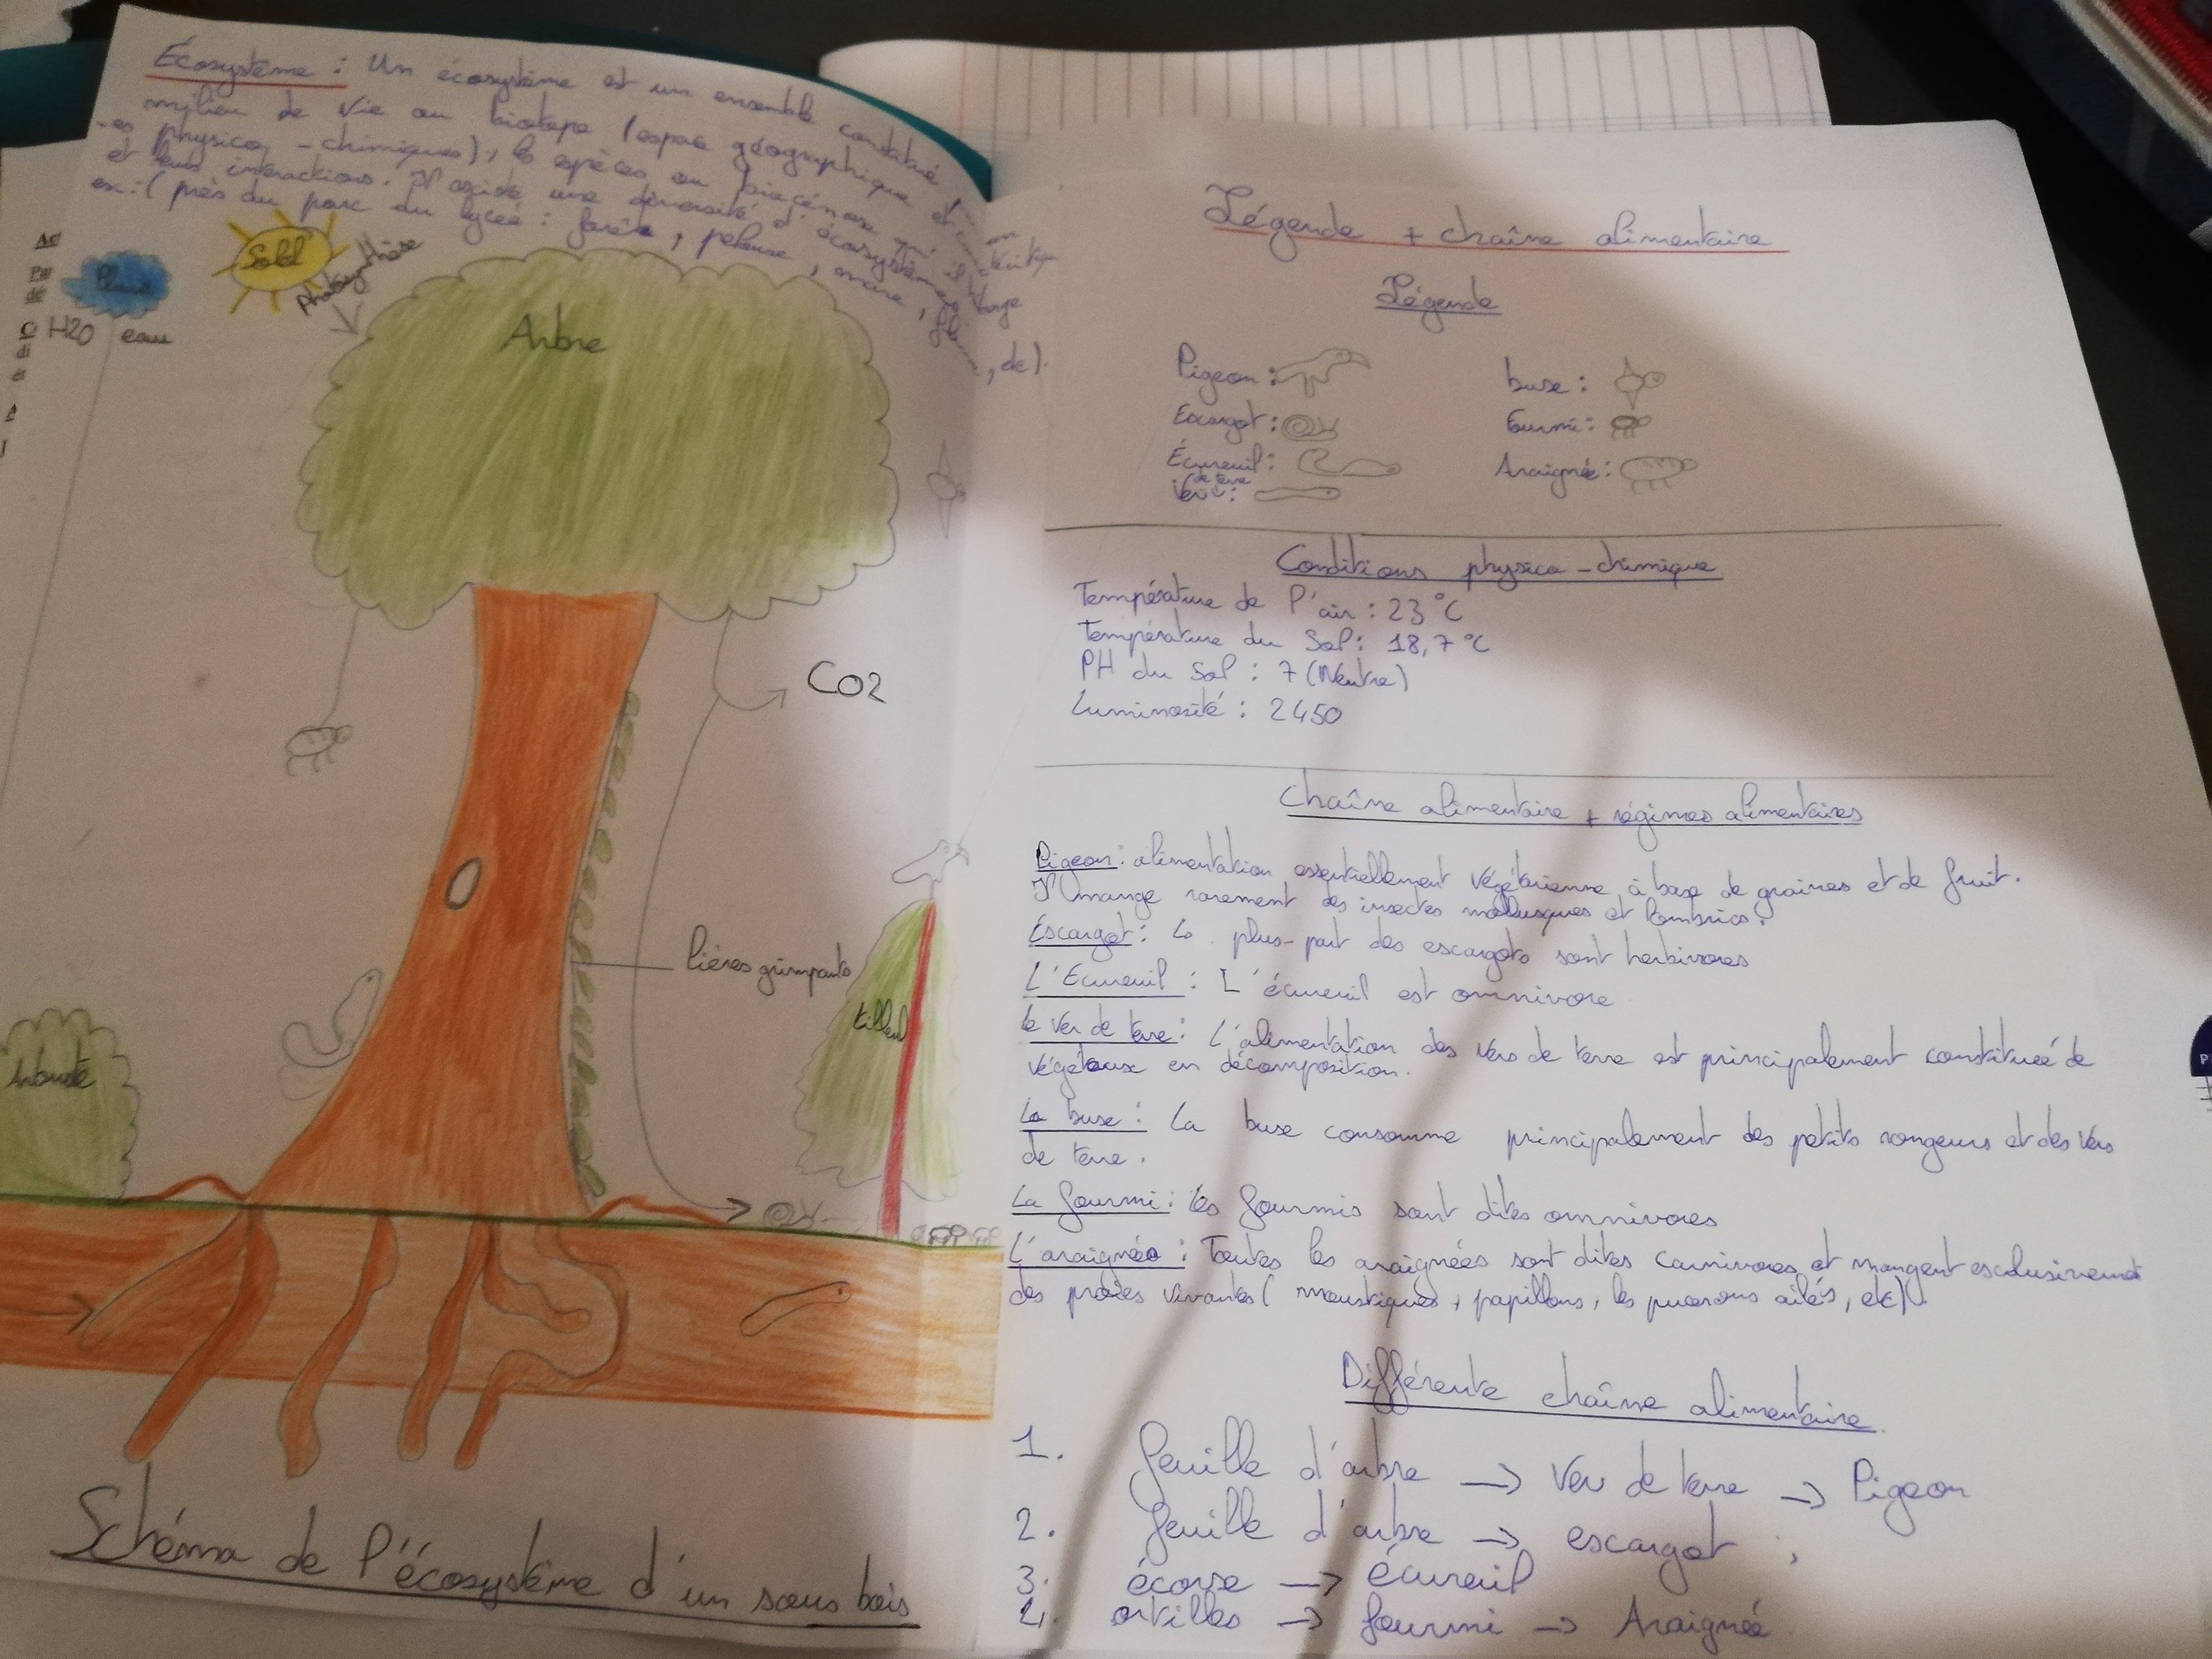 Écosystème : Un écosystème est un ensemble constitué
milieu de vie ou biotope (espace géographique et
-es physico-chimiques), les espèces ou biocénose qui
et leurs interactions. Il existe une diversité d'écosystèmes
ex : (près du parc du lycée : forêt, pelouse, mare,
, etc).
Soleil
Pluie
H2O eau
Photosynthèse
Arbre
CO2
lières grimpants
tilleul
Arbuste
Schéma de l'écosystème d'un sous bois
Légende + chaîne alimentaire
Légende
Pigeon : buse :
Escargot : Fourmi :
Écureuil : Araignée :
Ver de terre :
Conditions physico-chimique
Température de l'air : 23°C
Température du Sol : 18,7°C
PH du Sol : 7 (Neutre)
Luminosité : 2450
Chaîne alimentaire + régimes alimentaires
Pigeon : alimentation essentiellement végétarienne, à base de graines et de fruit.
Il mange rarement des insectes mollusques et lombrics.
Escargot : La plus-part des escargots sont herbivores
L'Ecureuil : L'écureuil est omnivore
Le Ver de terre : L'alimentation des Vers de terre est principalement constitueé de
végétaux en décomposition.
La buse : La buse consomme principalement des petits rongeurs et des Vers
de terre.
La fourmi : Les fourmis sont dites omnivores
L'araignée : Toutes les araignées sont dites carnivores et mangent exclusivement
des proies vivantes ( moustiques, papillons, les pucerons ailés, etc).
Différente chaîne alimentaire
1. feuille d'arbre → Ver de terre → Pigeon
2. feuille d'arbre → escargot
3. écorse → écureuil
4. ortilles → fourmi → Araignée